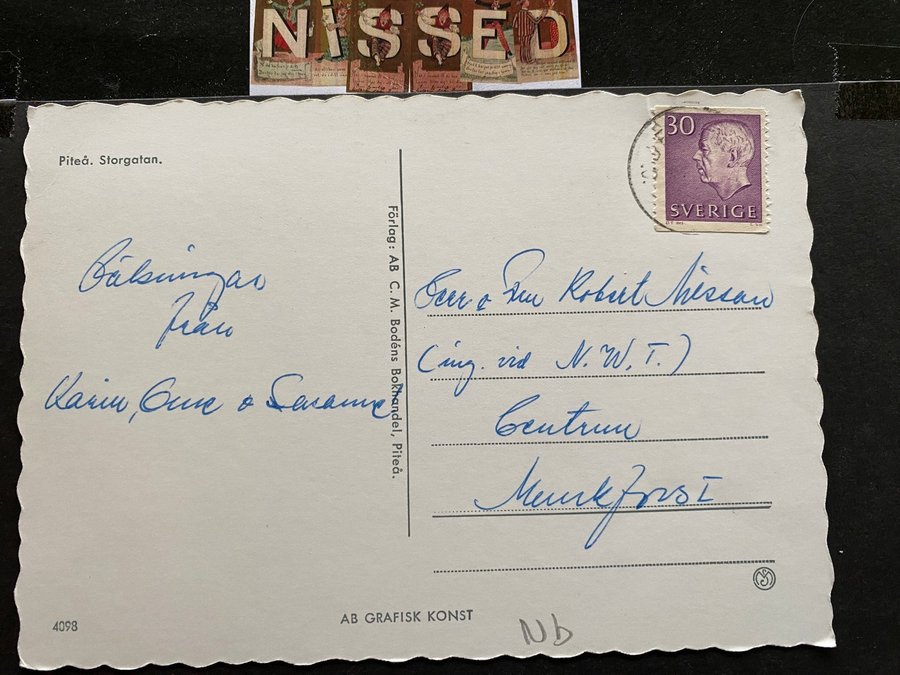 NISSED
Piteå. Storgatan.
30
SVERIGE
Hälsningar
från
Karin, Ove o Susanne
Förlag: AB C. M. Bodéns Bokhandel, Piteå.
Herr o Fru Robert Nilsson
(ing. vid N.W.T.)
Centrum
Munkfors I
AB GRAFISK KONST
4098
Nb